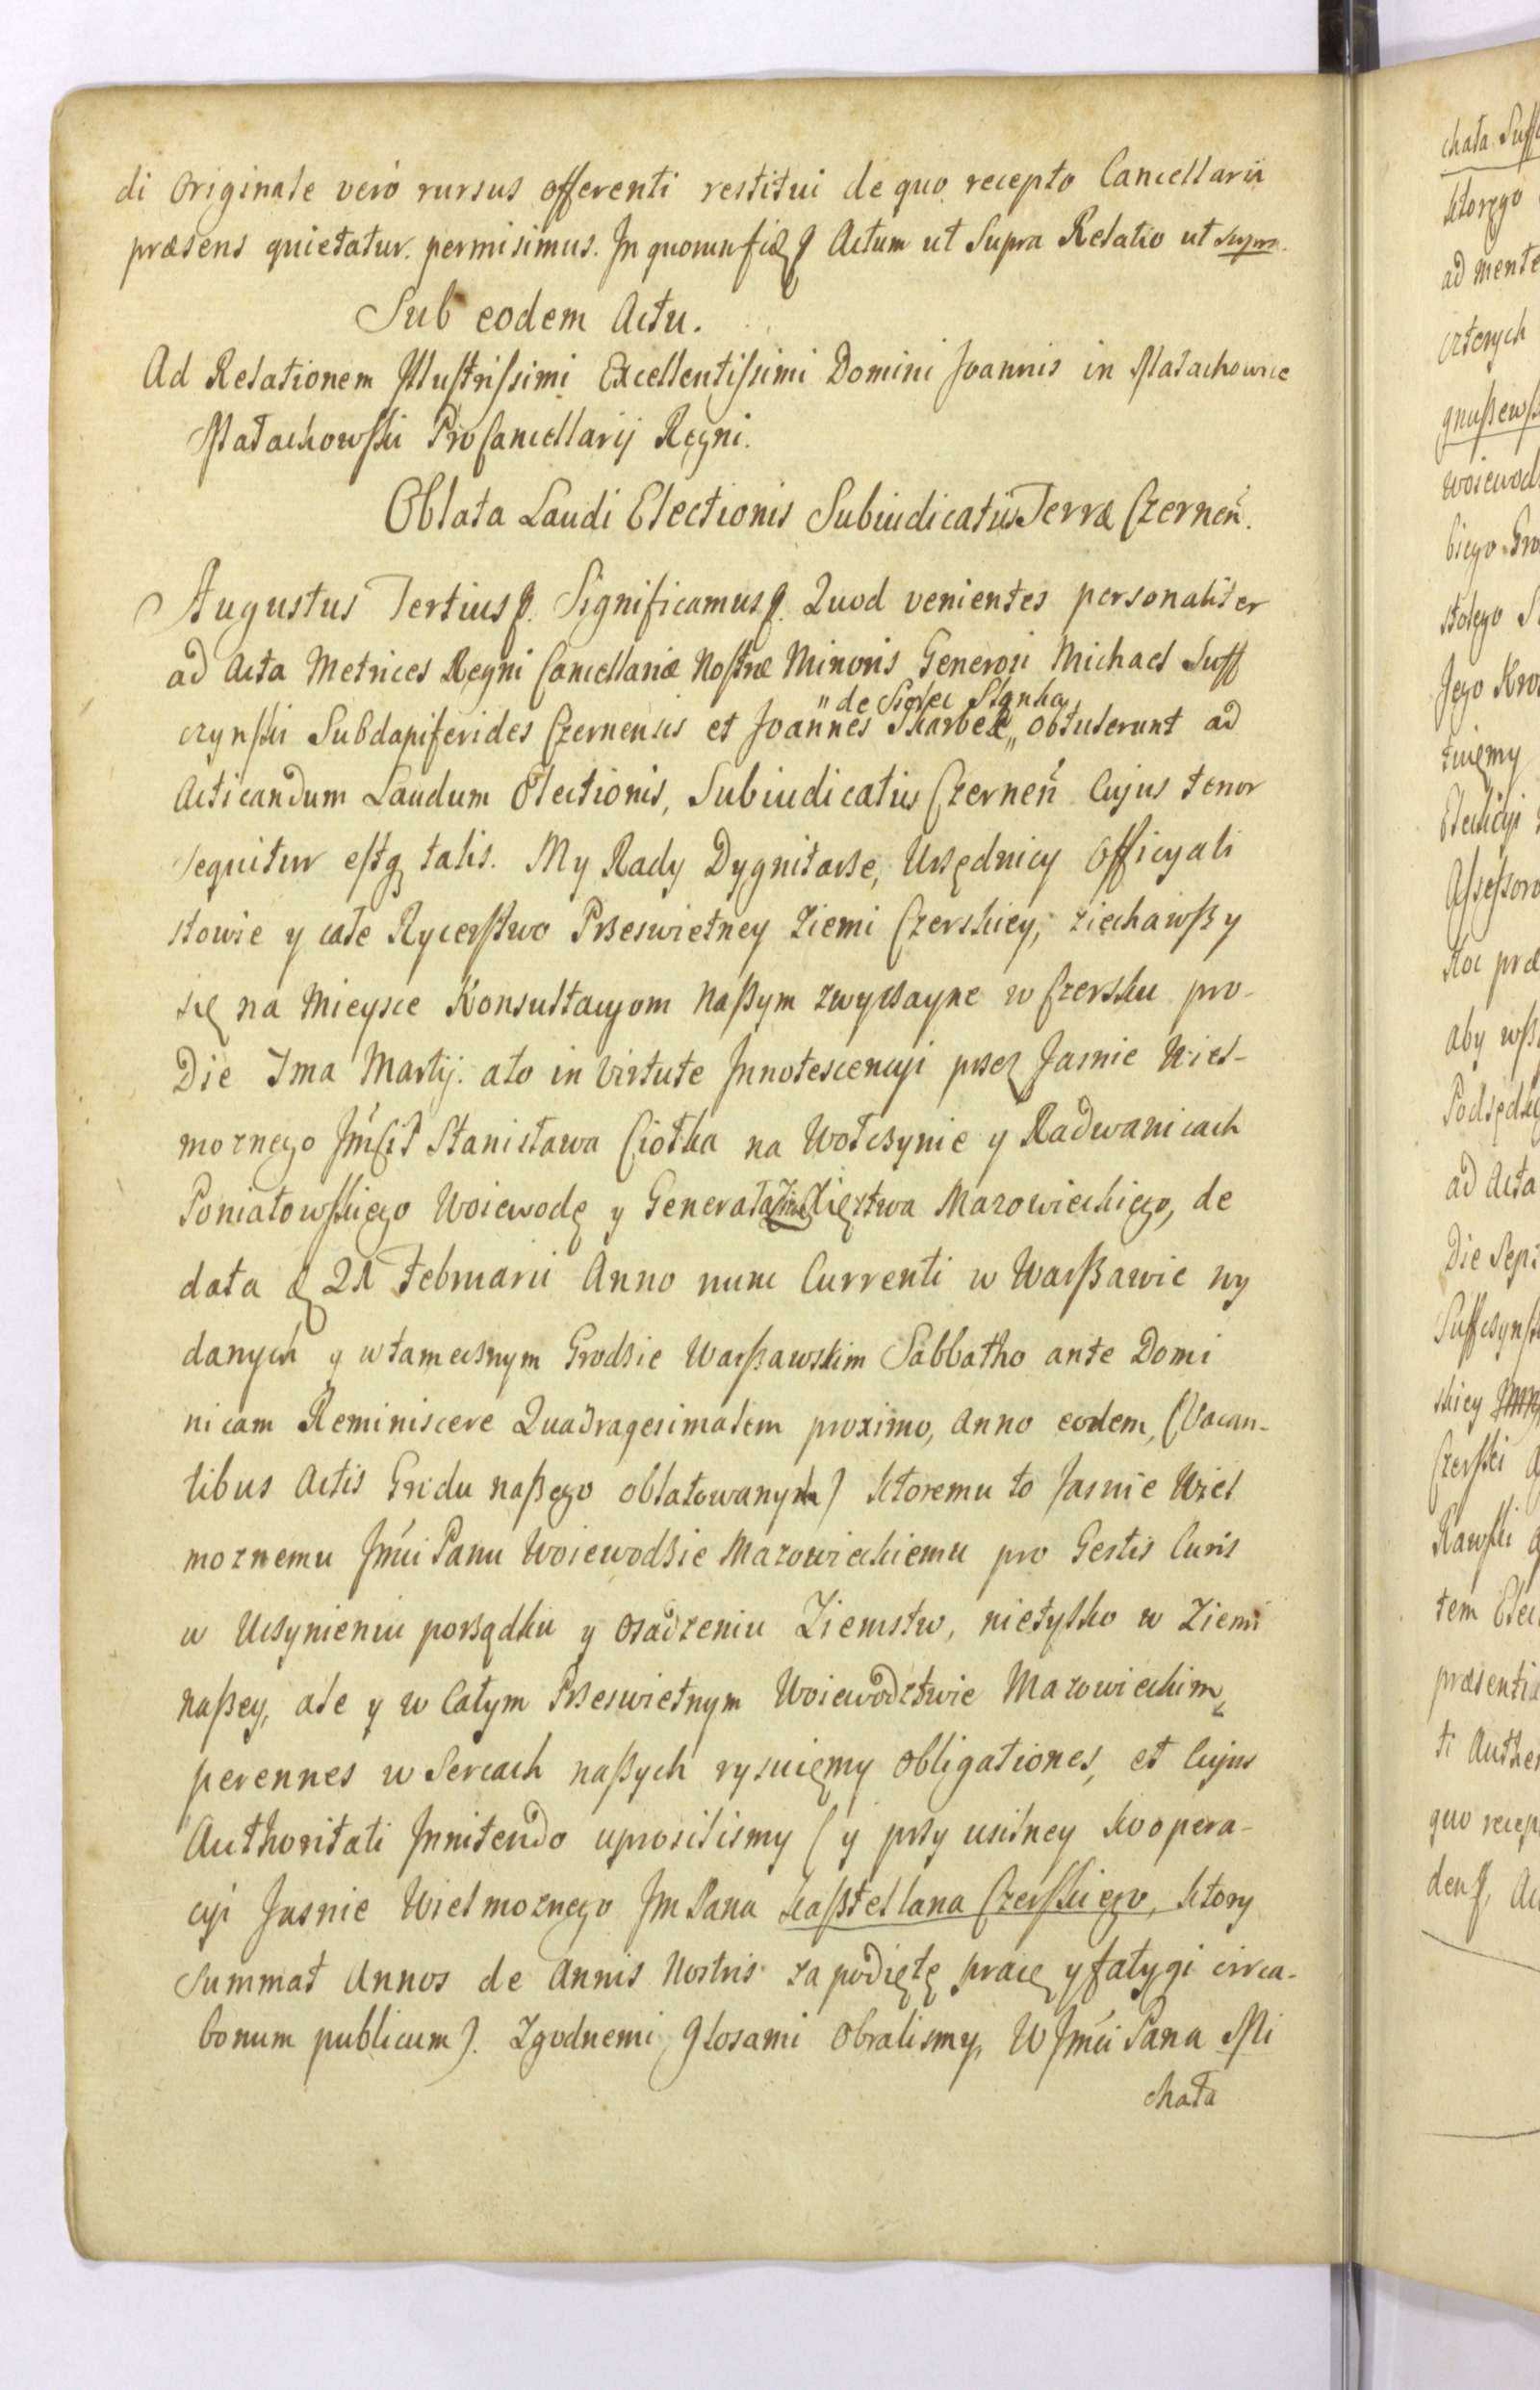 di Originale verò rursus offerenti restitui de quo recepto Cancellaria
præsens quietatur. permisimus. In quorum fidę Actum ut Supra Relatio ut supra.
Sub eodem Actu.
Ad Relationem Illustrissimi Excellentissimi Domini Joannis in Małachowice
Małachowski ProCancellarij Regni.
Oblata Laudi Electionis Subiudicatus Terræ Czerneń.
Augustus Tertius Significamus Quod venientes personaliter
ad Acta Metrices Regni Cancellariæ Nostræ Minoris Generosi Michael Suff
czynski Subdapiferides Czernensis et Joannes Skarbek „ obtulerunt ad
„ de Sielec Stanka
Acticandum Laudum Electionis, Subiudicatus Czerneń Cujus tenor
sequitur estq talis. My Rady Dygnitarze, Urzędnicy Officyali
stowie y całe Rycerstwo Przeswietney Ziemi Czerskiey, ziechawszy
się na Mieysce Konsultacyom Naszym zwyczayne w Czersku pro-
Die Ima Martij. ato in Virtute Innotescencyi przez Jasnie Wiel-
moznego Stanisława Ciołka na Wołczynie y Radwanicach
Poniatowskiego Woiewodę y Generała Xięztwa Mazowieckiego, de
data 21 Februarii Anno nunc Currenti w Warszawie wy
danych y w tamecznym Grodzie Warszawskim Sabbatho ante Domi
nicam Reminiscere Quadragesimalem proximo, Anno eodem, (Vacan-
tibus Actis Grodu naszego oblatowanych) ktoremu to Jasnie Wiel
moznemu Jmći Panu Woiewodzie Mazowieckiemu pro Gestis Curis
w Uczynieniu porządku y osadzeniu Ziemstw, nietylko w Ziemi
naszey, ale y w Całym Przeswietnym Woiewodztwie Mazowieckim,
perennes w Sercach naszych rysuięmy obligationes, et Cujus
Authoritati Innitendo uprosilismy (y przy usilney koopera-
cyi Jasnie Wielmoznego Jm Pana kasztellana Czerskiego, ktory
Summat Annos de Annis Nostris za podiętę pracę y fatygi circa-
bonum publicum). Zgodnemi Głosami Obralismy, W Jmći Pana Mi
chała
chała Suff
ktorego
ad mente
czterych
woiewod
biego Gro
stolego S
Jego Kro
tuięmy
Elekcyi
Assessoro
ktoc præ
aby wsz
Podsędk
ad Acta
Die Sept
Suffczynsk
skiey
Czerski
Rawski
tem Elec
præsentia
ti Authen
quo recep